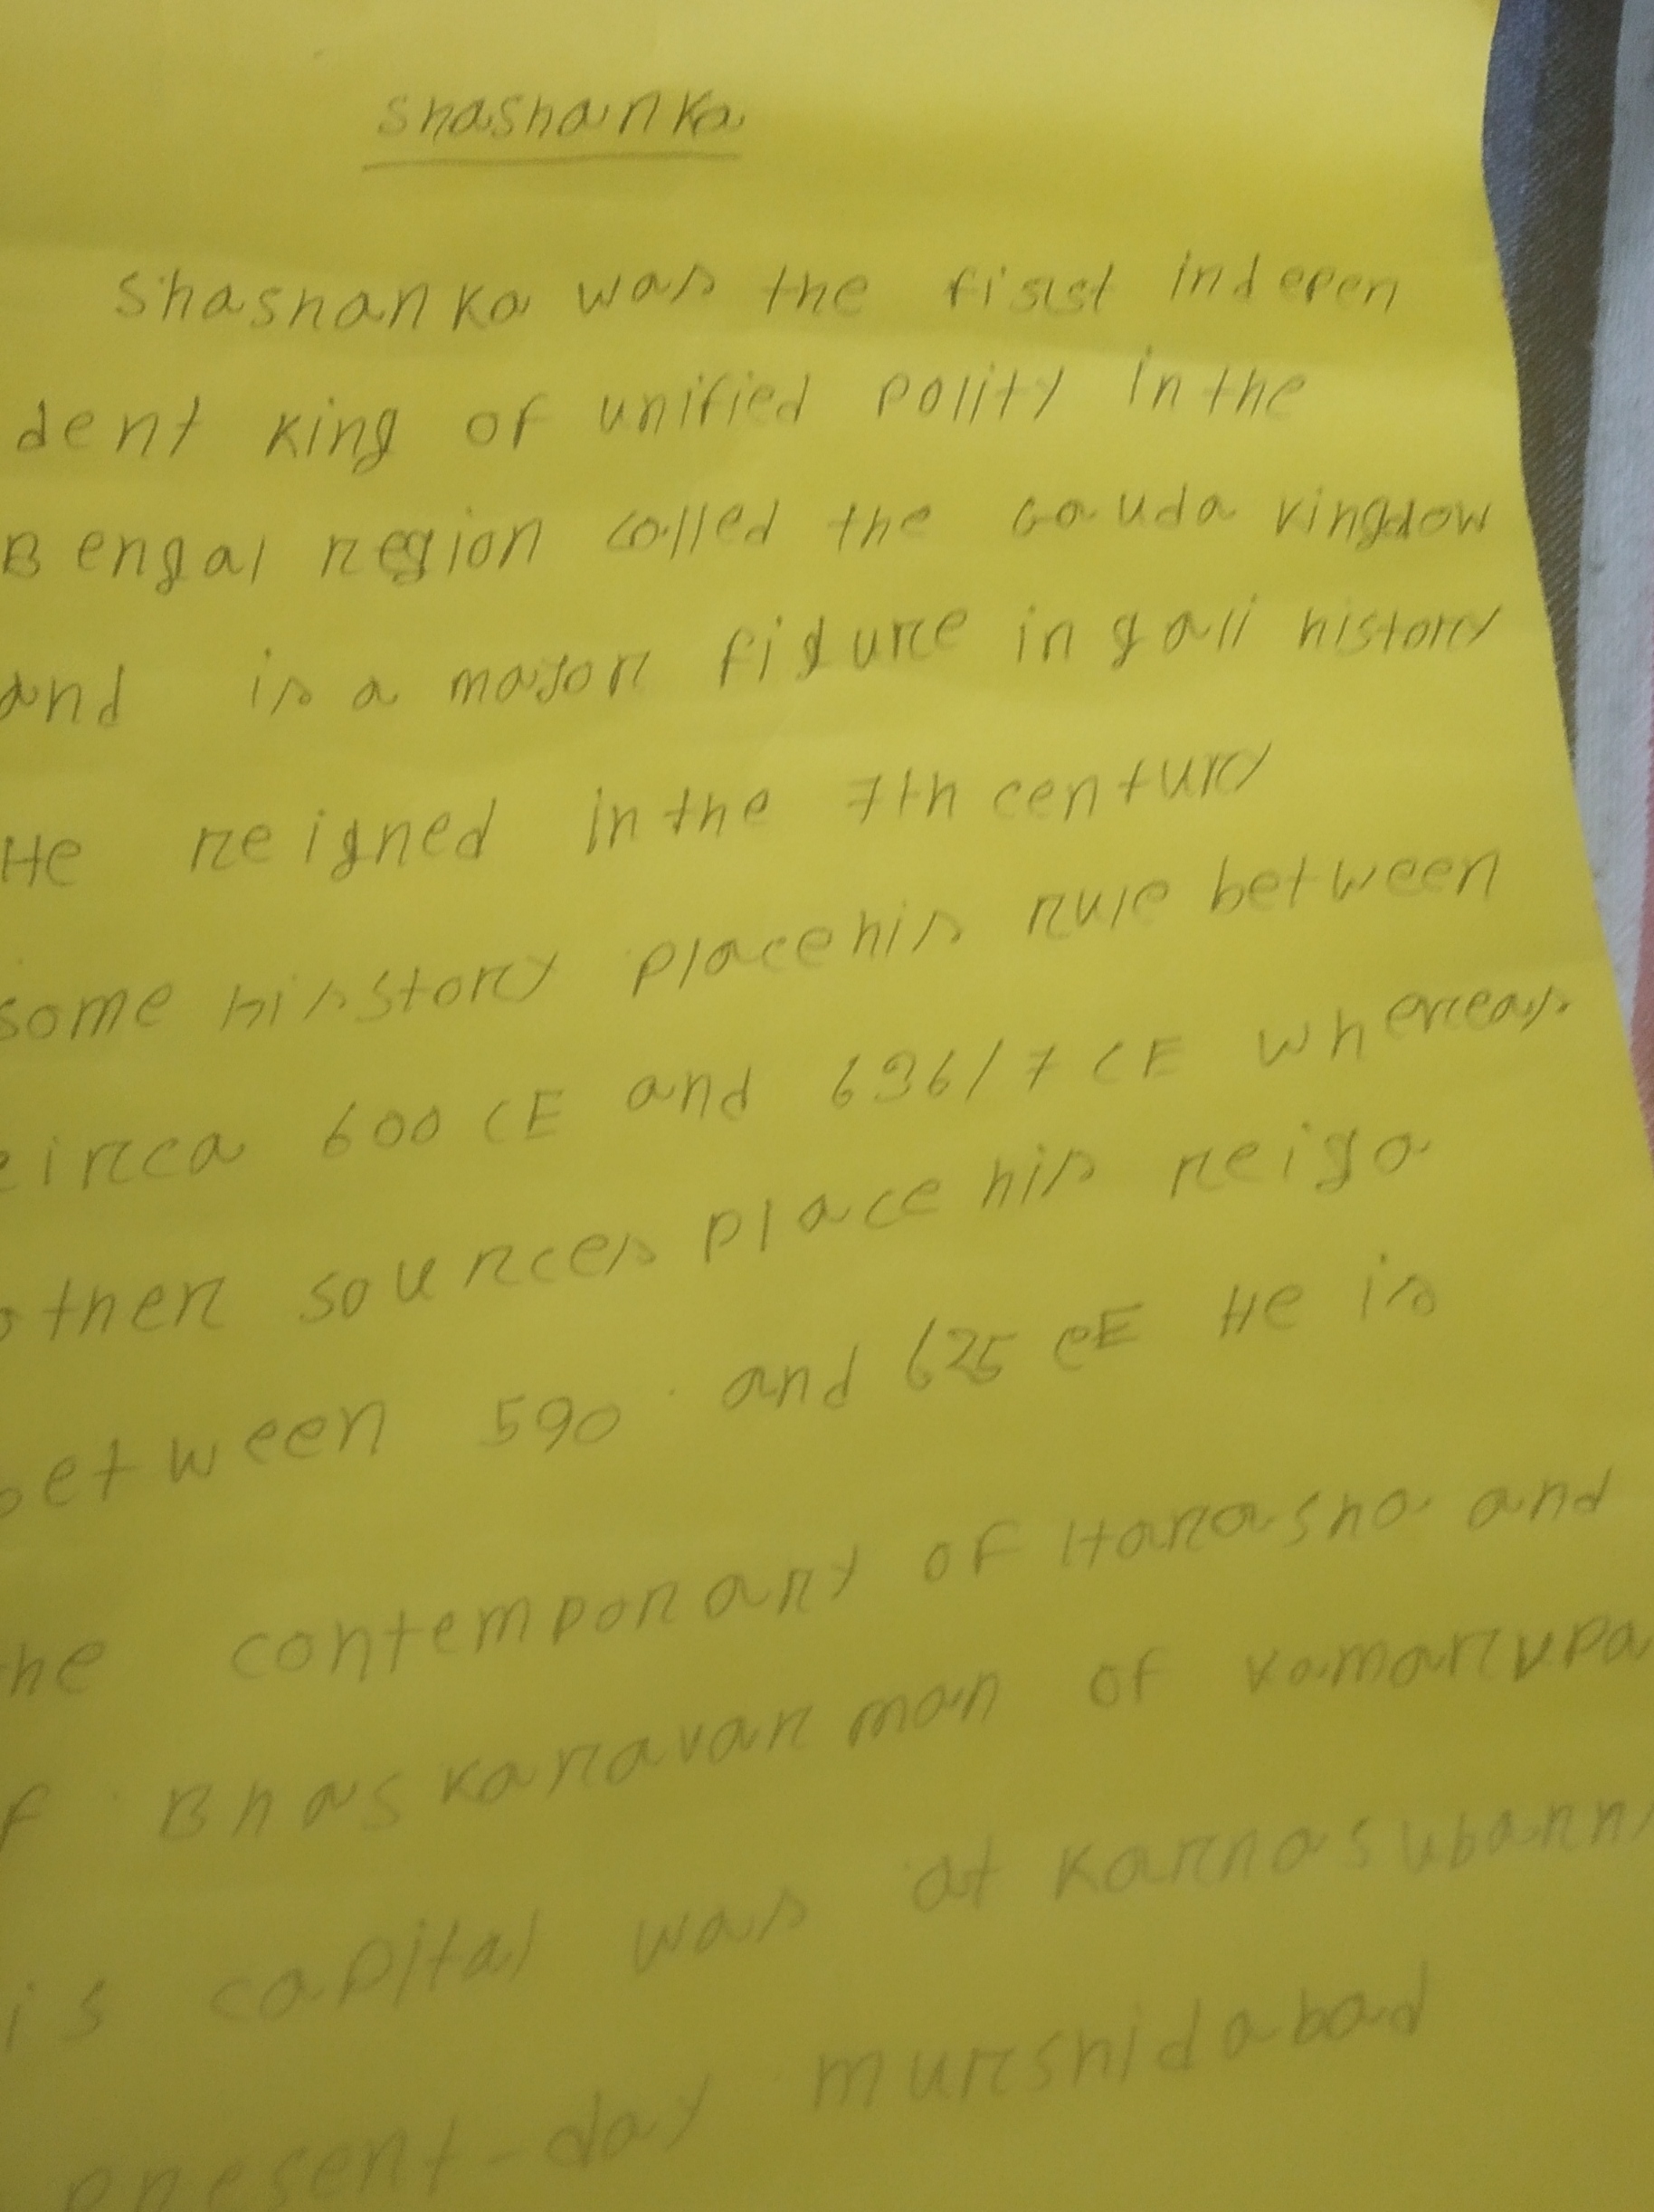 Shashanka
Shashanka was the first indepen
dent king of unified polity in the
Bengal region called the Gauda kingdow
and is a major figure in gali history
He reigned in the 7th century
some hisstory place his rule between
circa 600 CE and 636/7 CE whereas
other sources place his reiga
between 590 and 625 CE He is
he contemporary of Harasha and
f Bhaskaravarman of Kamarupa
is capital was at Karnasubarn
present-day murshidabad